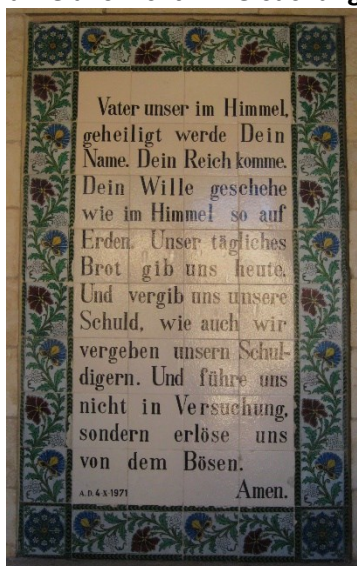 Vater unser im Himmel,
geheiligt werde Dein
Name. Dein Reich komme.
Dein Wille geschehe
wie im Himmel so auf
Erden. Unser tägliches
Brot gib uns heute.
Und vergib uns unsere
Schuld, wie auch wir
vergeben unsern Schul-
digern. Und führe uns
nicht in Versuchung,
sondern erlöse uns
von dem Bösen.
A.D. 4·X·1971 Amen.